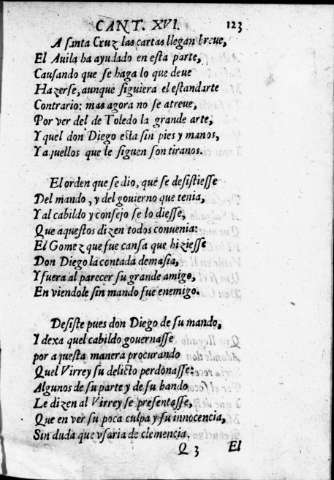 CANT. XVI. 123
A santa Cruz las cartas llegan breue,
El Auila ha ayudado en esta parte,
Causando que se haga lo que deue
Hazerse, aunque siguiera el estandarte
Contrario: mas agora no se atreue,
Por ver del de Toledo la grande arte,
Y quel don Diego esta sin pies y manos,
Y aquellos que le siguen son tiranos.
El orden que se dio, que se desistiesse
Del mando, y del gouierno que tenia,
Y al cabildo y consejo se lo diesse,
Que aquestos dizen todos conuenia:
El Gomez que fue causa que hiziesse
Don Diego la contada demasia,
Y fuera al parecer su grande amigo,
En viendole sin mando fue enemigo.
Desiste pues don Diego de su mando,
Y dexa quel cabildo gouernasse
por aquesta manera procurando
Quel Virrey su delicto perdonasse:
Algunos de su parte y de su bando
Le dizen al Virrey se presentasse,
Que en ver su poca culpa y su innocencia,
Sin duda que vsaria de clemencia.
Q 3 El